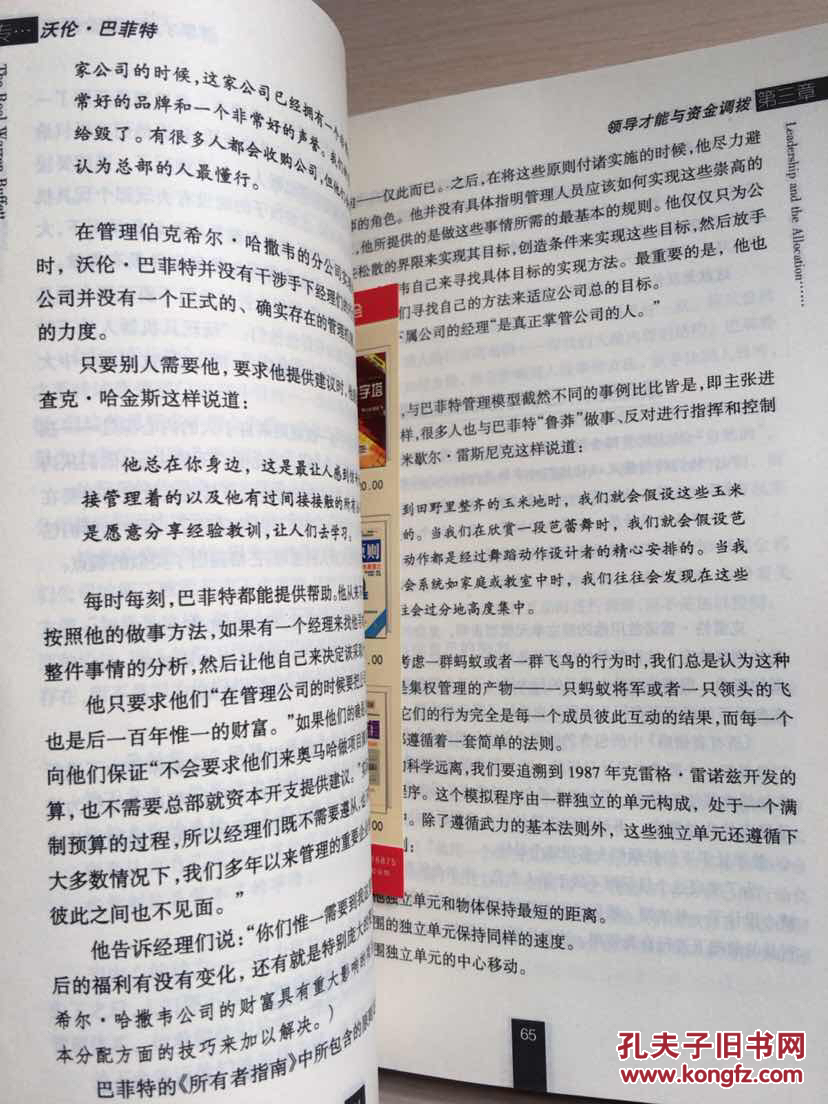 沃伦·巴菲特
The Real Warren Buffett
家公司的时候，这家公司已经拥有一个
常好的品牌和一个非常好的声誉。我们
给毁了。有很多人都会收购公司，但他们
认为总部的人最懂行。
在管理伯克希尔·哈撒韦的分公司
时，沃伦·巴菲特并没有干涉手下经理们
公司并没有一个正式的、确实存在的管理
的力度。
只要别人需要他，要求他提供建议时，
查克·哈金斯这样说道：
他总在你身边，这是最让人感到
接管理着的以及他有过间接接触的所有
是愿意分享经验教训，让人们去学习。
每时每刻，巴菲特都能提供帮助。他从来
按照他的做事方法，如果有一个经理来找他
整件事情的分析，然后让他自己来决定该采取
他只要求他们“在管理公司的时候要把
也是后一百年惟一的财富。”如果他们的
向他们保证“不会要求他们来奥马哈做项目
算，也不需要总部就资本开支提供建议。”
制预算的过程，所以经理们既不需要遵从
大多数情况下，我们多年以来管理的重要
彼此之间也不见面。”
他告诉经理们说：“你们惟一需要到我
后的福利有没有变化，还有就是特别庞大的
希尔·哈撒韦公司的财富具有重大影响的
本分配方面的技巧来加以解决。）
巴菲特的《所有者指南》中所包含的原则
字塔
0.00
原则
.00
.00
16875
com
领导才能与资金调拨 第三章
Leadership and the Allocation……
——仅此而已。之后，在将这些原则付诸实施的时候，他尽力避
师的角色。他并没有具体指明管理人员应该如何实现这些崇高的
，他所提供的是做这些事情所需的最基本的规则。他仅仅只为公
松散的界限来实现其目标，创造条件来实现这些目标，然后放手
韦自己来寻找具体目标的实现方法。最重要的是，他也
们寻找自己的方法来适应公司总的目标。
下属公司的经理“是真正掌管公司的人。”
，与巴菲特管理模型截然不同的事例比比皆是，即主张进
样，很多人也与巴菲特“鲁莽”做事、反对进行指挥和控制
米歇尔·雷斯尼克这样说道：
到田野里整齐的玉米地时，我们就会假设这些玉米
的。当我们在欣赏一段芭蕾舞时，我们就会假设芭
动作都是经过舞蹈动作设计者的精心安排的。当我
会系统如家庭或教室中时，我们往往会发现在这些
往会过分地高度集中。
考虑一群蚂蚁或者一群飞鸟的行为时，我们总是认为这种
是集权管理的产物——一只蚂蚁将军或者一只领头的飞
它们的行为完全是每一个成员彼此互动的结果，而每一个
都遵循着一套简单的法则。
的科学远离，我们要追溯到 1987 年克雷格·雷诺兹开发的
程序。这个模拟程序由一群独立的单元构成，处于一个满
。除了遵循武力的基本法则外，这些独立单元还遵循下
则：
他独立单元和物体保持最短的距离。
围的独立单元保持同样的速度。
围独立单元的中心移动。
65
孔夫子旧书网
www.kongfz.com